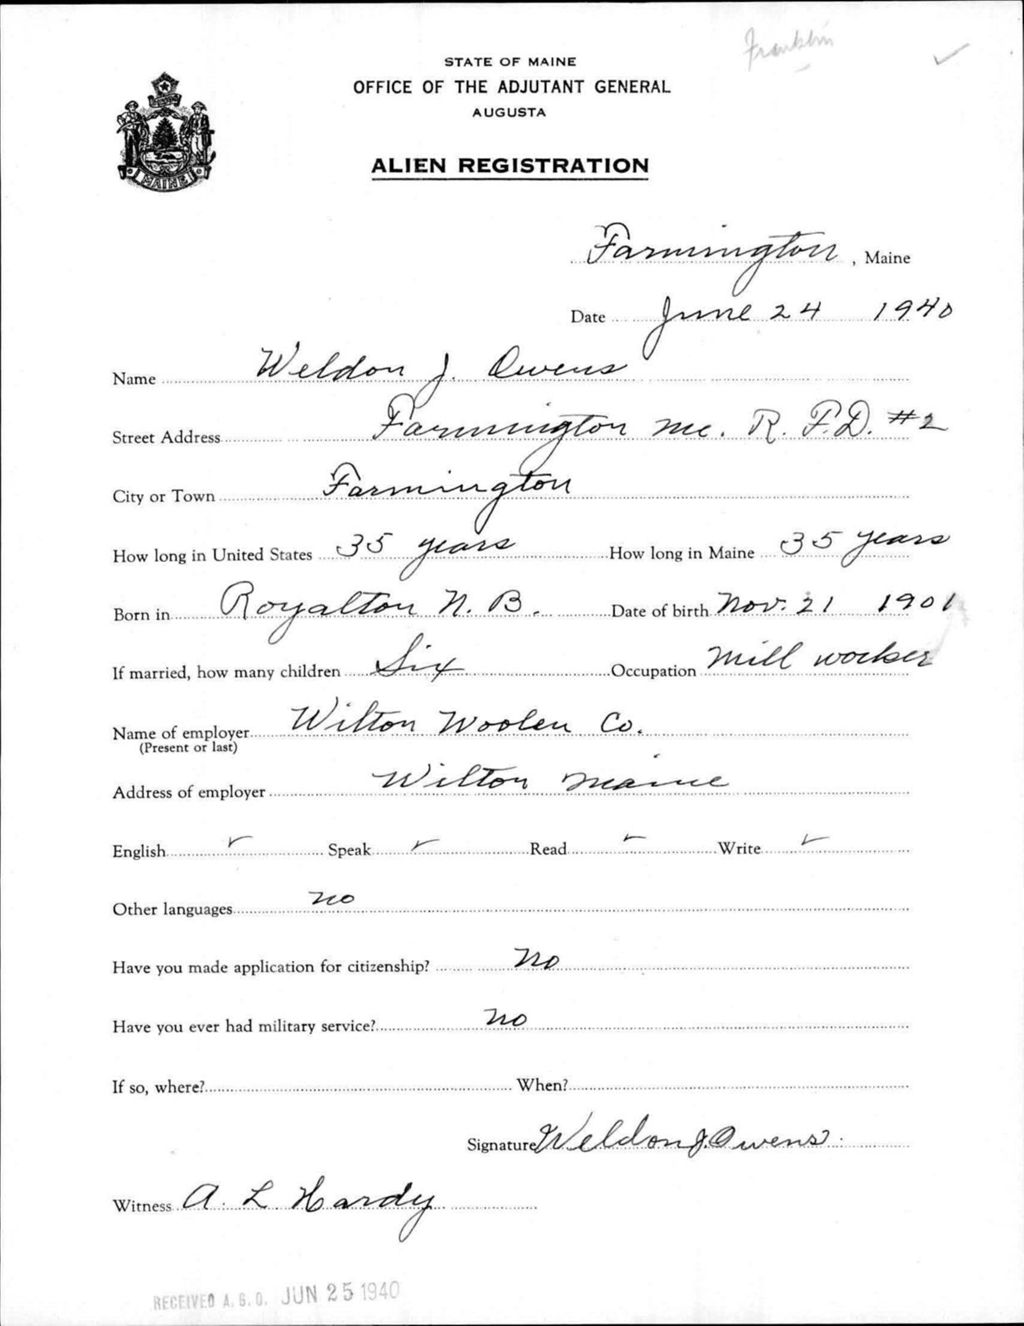 Franklin
STATE OF MAINE
OFFICE OF THE ADJUTANT GENERAL
AUGUSTA
ALIEN REGISTRATION
MAINE
Farmington, Maine
Date June 24 1940
Name Weldon J. Owens
Street Address Farmington Me. R. F.D. #2
City or Town Farmington
How long in United States 35 years How long in Maine 35 years
Born in Royalton N. B. Date of birth Nov. 21 1901
If married, how many children Six Occupation Mill worker
Name of employer Wilton Woolen Co.
(Present or last)
Address of employer Wilton Maine
English ✓ Speak ✓ Read ✓ Write ✓
Other languages no
Have you made application for citizenship? No
Have you ever had military service? no
If so, where? When?
Signature Weldon J. Owens
Witness A. L. Hardy
RECEIVED A. G. O. JUN 25 1940